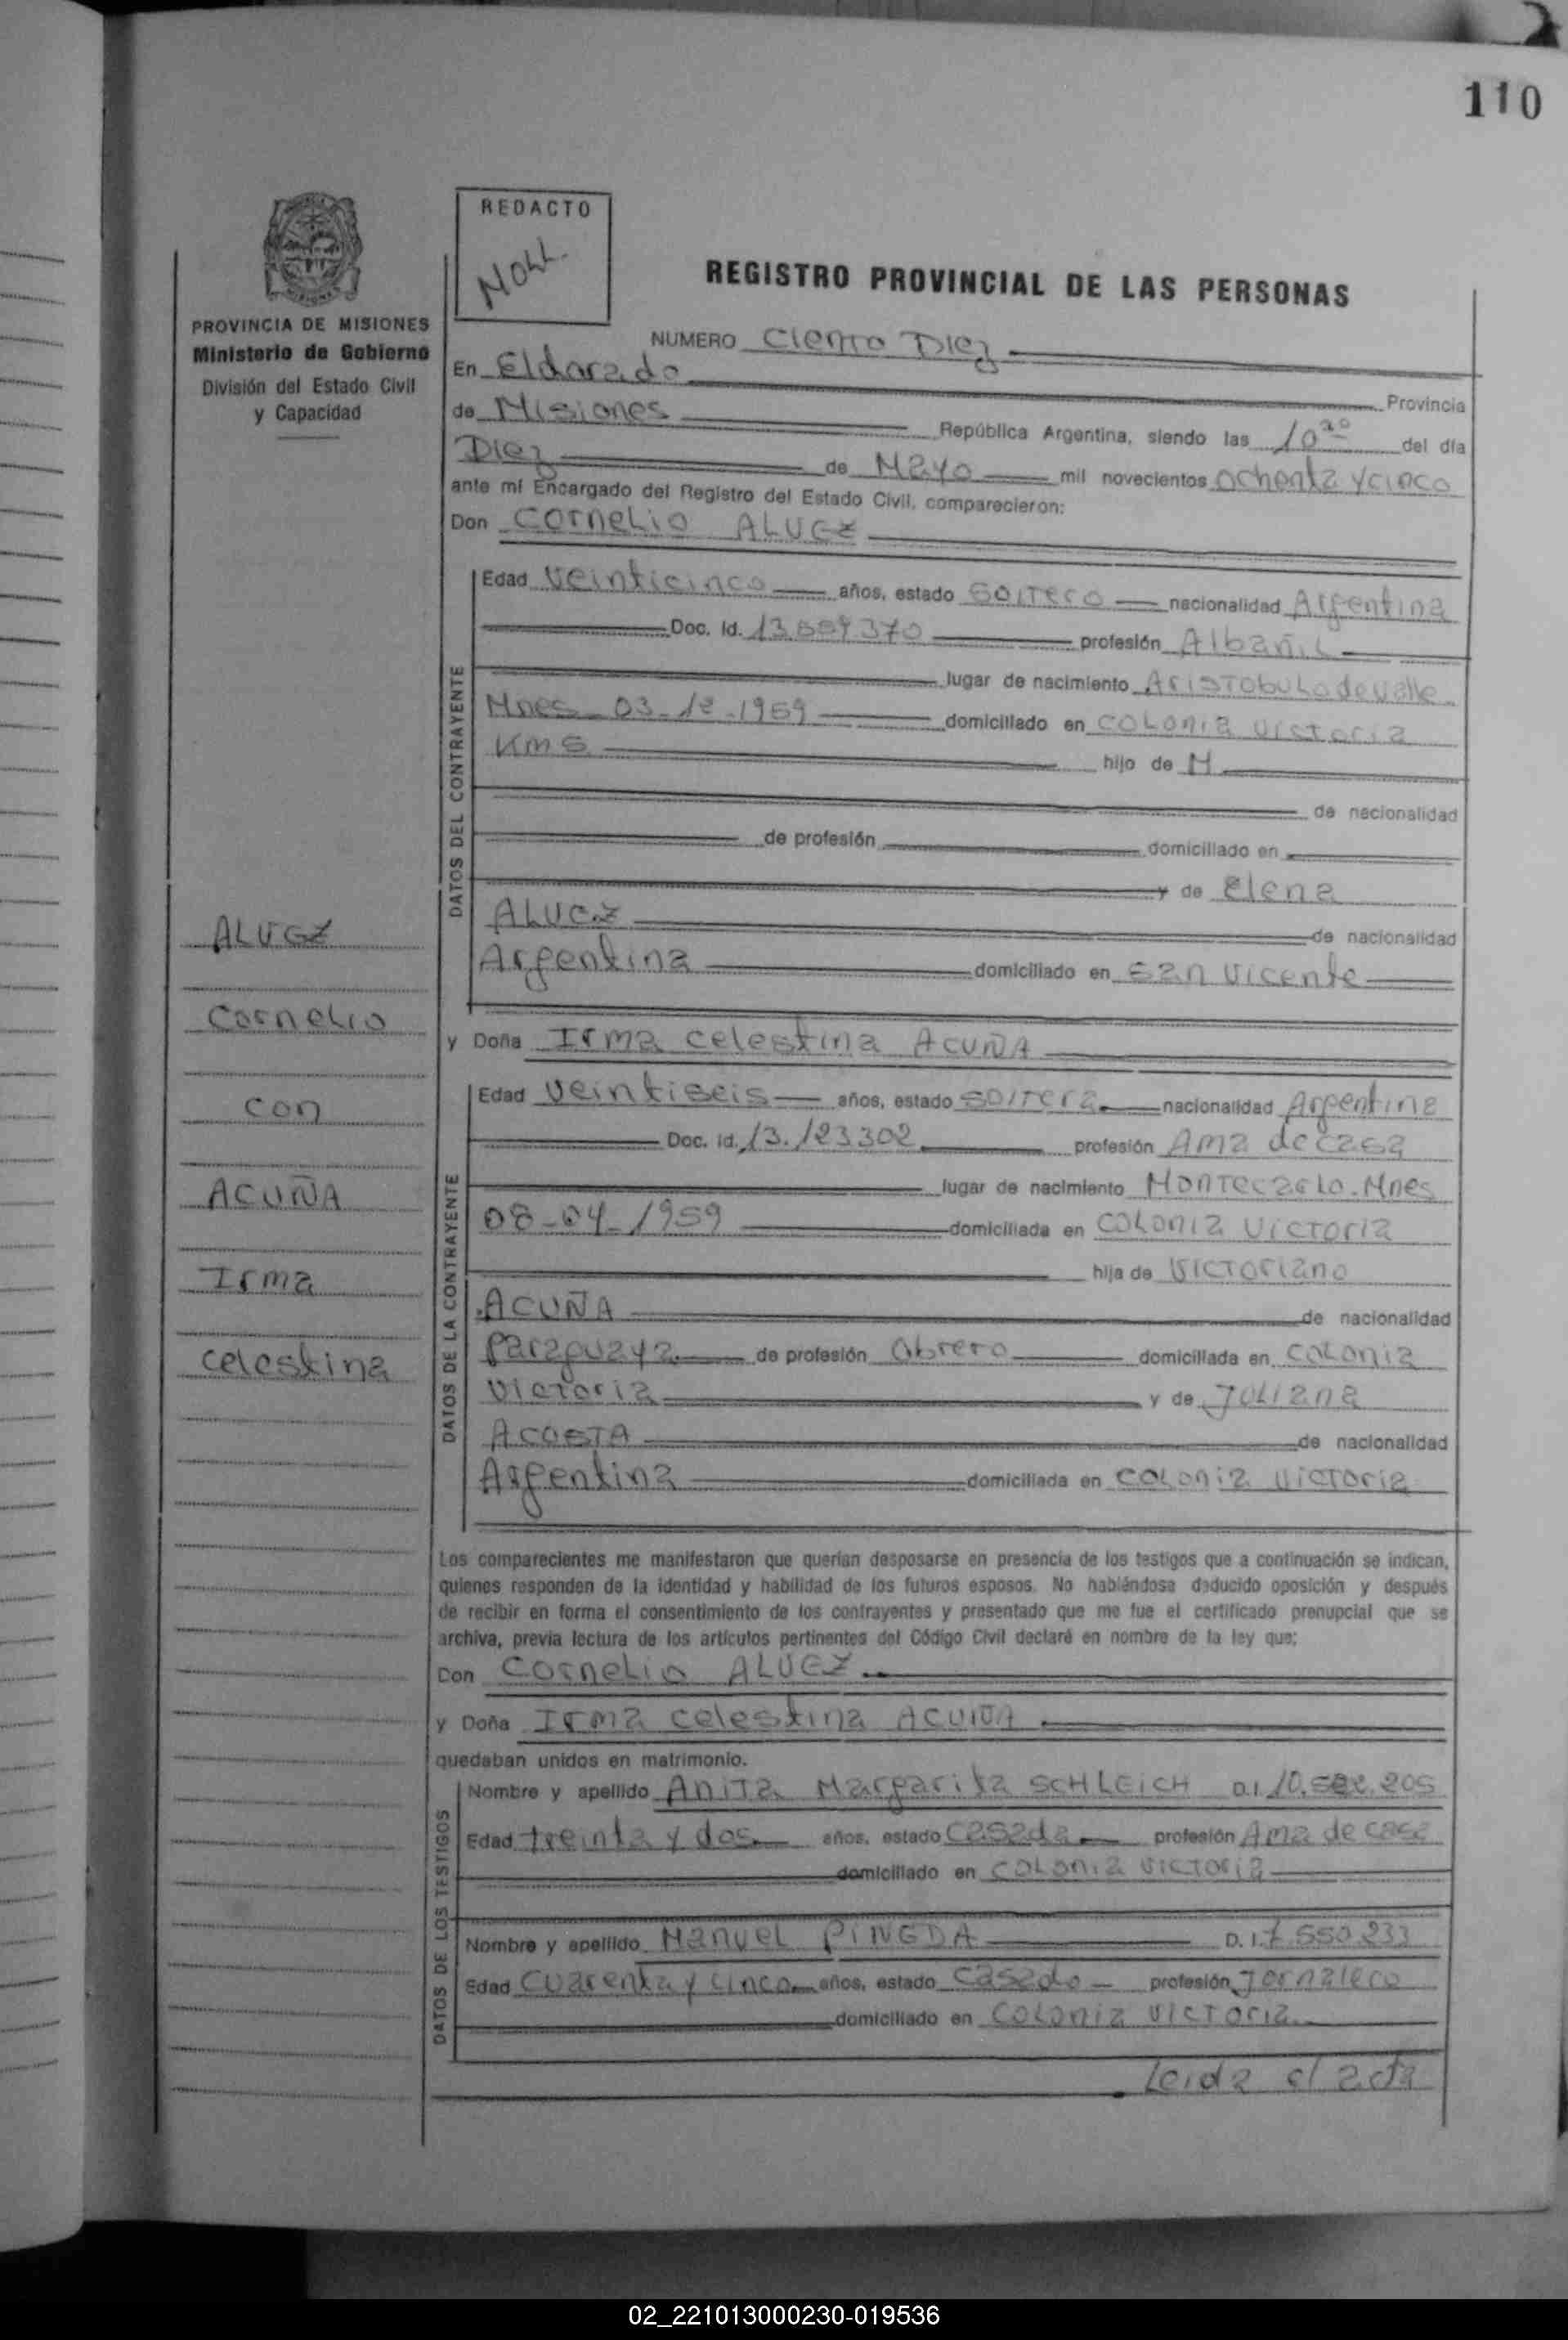 110
REDACTO
NOLL
REGISTRO PROVINCIAL DE LAS PERSONAS
PROVINCIA DE MISIONES
Ministerio de Gobierno
División del Estado Civil
y Capacidad
NUMERO Ciento Diez
En Eldorado Provincia
de Misiones República Argentina, siendo las 10 30 del día
Diez de Mayo mil novecientos ochenta y cinco
ante mí Encargado del Registro del Estado Civil, comparecieron:
Don Cornelio ALVEZ
DATOS DEL CONTRAYENTE
Edad veinticinco años, estado soltero nacionalidad Argentina
Doc. Id. profesión Albañil
lugar de nacimiento Aristobulo de Valle
Mnes 03-12-1959 domiciliado en Colonia Victoria
Km 5 hijo de M
de nacionalidad
de profesión domiciliado en
y de Elena
ALVEZ de nacionalidad
Argentina domiciliado en San Vicente
y Doña Irma Celestina ACUÑA
ALVEZ
Cornelio
con
ACUÑA
Irma
Celestina
DATOS DE LA CONTRAYENTE
Edad veintiseis años, estado soltera nacionalidad Argentina
Doc. Id. 13.123302 profesión Ama de casa
lugar de nacimiento Montecarlo. Mnes
08-04-1959 domiciliada en Colonia Victoria
hija de Victoriano
ACUÑA de nacionalidad
Paraguaya de profesión Obrero domiciliada en Colonia
Victoria y de Juliana
ACOSTA de nacionalidad
Argentina domiciliada en Colonia Victoria
Los comparecientes me manifestaron que querían desposarse en presencia de los testigos que a continuación se indican,
quienes responden de la identidad y habilidad de los futuros esposos. No habiéndose deducido oposición y después
de recibir en forma el consentimiento de los contrayentes y presentado que me fue el certificado prenupcial que se
archiva, previa lectura de los artículos pertinentes del Código Civil declaré en nombre de la ley que:
Don Cornelio ALVEZ
y Doña Irma Celestina ACUÑA
quedaban unidos en matrimonio.
DATOS DE LOS TESTIGOS
Nombre y apellido Anita Margarita SCHLEICH D.I.
Edad treinta y dos años, estado casada profesión Ama de casa
domiciliado en Colonia Victoria
Nombre y apellido Manuel PINEDA D.I. 7.550.233
Edad Cuarenta y cinco años, estado casado profesión Jornalero
domiciliado en Colonia Victoria
Leida el acta
02_221013000230-019536